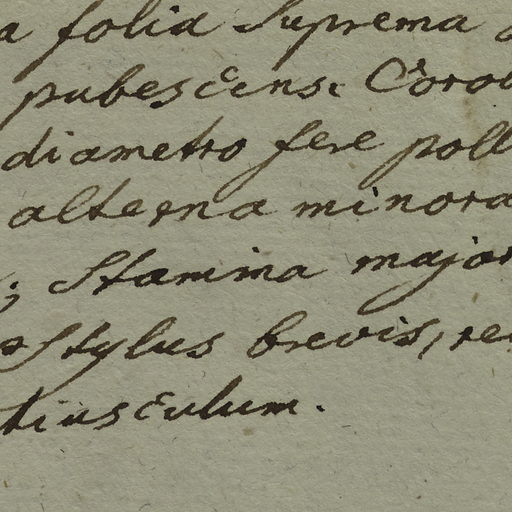 a folia Suprema
pubescens. Coro
diametro fere poll
alterna minora
; Stamina major
Stylus brevis, re
tiusculum.